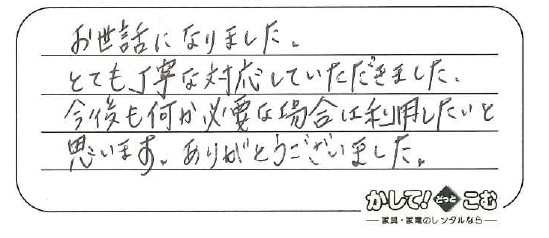 お世話になりました。
とても丁寧な対応していただきました。
今後も何か必要な場合は利用したいと
思います。ありがとうございました。
かして!どっとこむ
家具・家電のレンタルなら